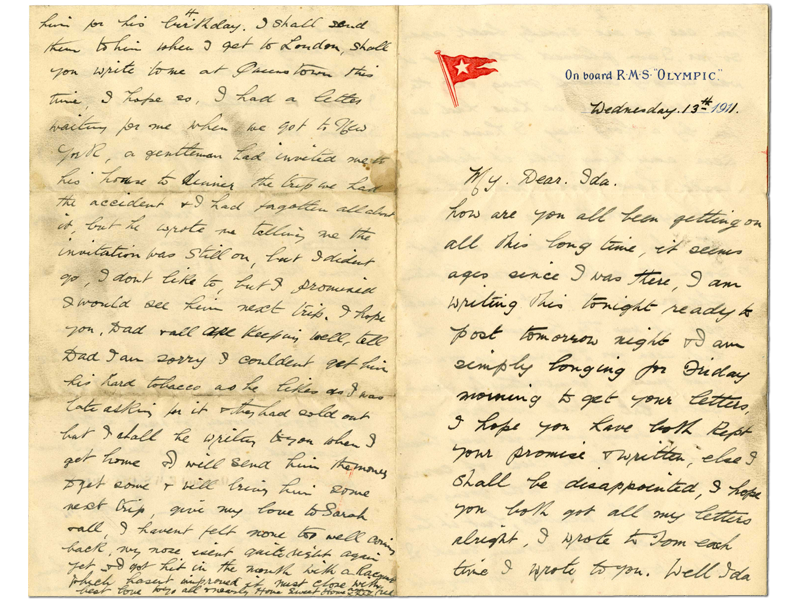 him for his birthday. I shall send
them to him when I get to London, shall
you write to me at Queenstown this
time, I hope so, I had a letter
waiting for me when we got to New
York, a gentleman had invited me to
his house to dinner the trip we had
the accident & I had forgotten all about
it, but he wrote me telling me the
invitation was still on, but I dident
go, I dont like to, but I promised
I would see him next trip. I hope
you, Dad & all are keeping well, tell
Dad I am sorry I couldent get him
his hard tobacco as he likes as I was
late asking for it & they had sold out
but I shall be writing to you when I
get home & I will send him the money
to get some & will bring him some
next trip, give my love to Sarah
& all, I havent felt none too well coming
back, my nose isent quite right again
yet & I got hit in the mouth with a Racquet
which hasent improved it must close with
best love to you all & nearly Home Sweet Home
On board R.M.S. "OLYMPIC."
Wednesday. 13th 1911.
My. Dear. Ida.
how are you all been getting on
all this long time, it seems
ages since I was there, I am
writing this tonight ready to
post tomorrow night & I am
simply longing for Friday
morning to get your letters,
I hope you have both kept
your promise & written, else I
shall be disappointed, I hope
you both got all my letters
alright, I wrote to Tom each
time I wrote to you. Well Ida